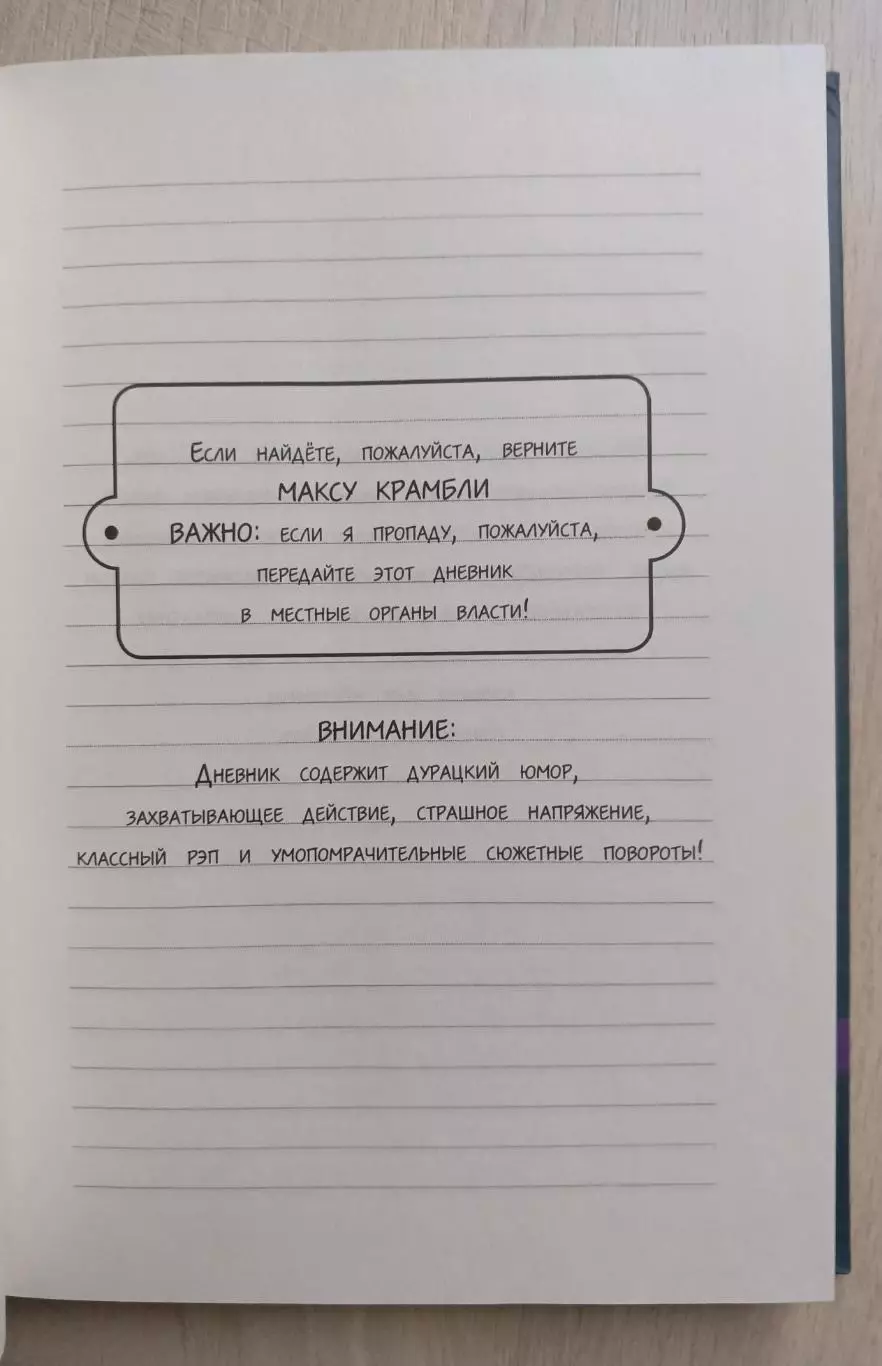 Если найдёте, пожалуйста, верните
МАКСУ КРАМБЛИ
ВАЖНО: если я пропаду, пожалуйста,
передайте этот дневник
в местные органы власти!
ВНИМАНИЕ:
Дневник содержит дурацкий юмор,
захватывающее действие, страшное напряжение,
классный рэп и умопомрачительные сюжетные повороты!